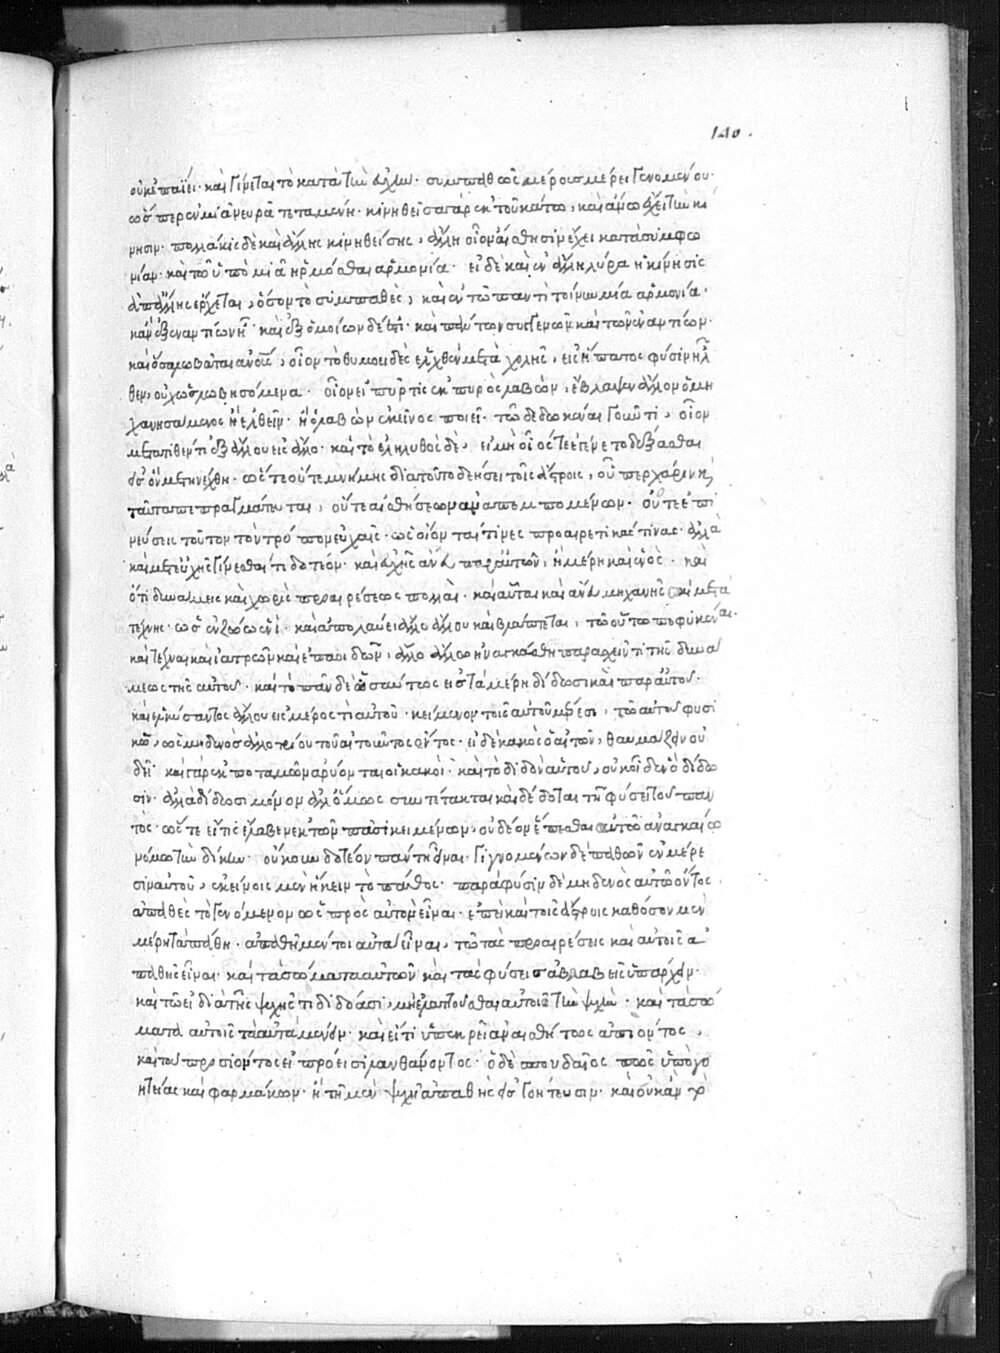 οὐκ ἐπαΐει· καὶ γίνεται τὸ κατὰ τὴν εὐχὴν· συμπαθοῦς μέρους μέρει γενομένου·
ὥσπερ ἐν μιᾶ νευρᾶ τεταμένη· κινηθεῖσα γὰρ ἐκ τοῦ κάτω, καὶ ἄνω ἔχει τὴν κί
νησιν· πολλάκις δὲ καὶ ἄλλης κινηθείσης, ἄλλη οἷον αἴσθησιν ἔχει κατὰ συμφω
νίαν· καὶ τῶ ὑπὸ μιᾶ ἡρμόσθαι ἁρμονία· εἰ δὲ καὶ ἐν ἄλλη λύρα ἡ κίνησις
ἀπ' ἄλλης ἔρχεται, ὅσον τὸ συμπαθές, καὶ ἐν τῶ παντὶ τοίνυν μία ἁρμονία·
κἂν ἐξ ἐναντίων ἦ· καὶ ἐξ ὁμοίων δέ ἐστι· καὶ πάντων συγγενῶν καὶ τῶν ἐναντίων·
καὶ ὅσα λωβᾶται ἀνους, οἷον τὸ θυμοειδὲς ἑλχθὲν μετὰ χολῆς, εἰς ἥπατος φύσιν ἦλ
θεν, οὐχ ὡς λωβησόμενα· οἷον εἰ πῦρ τις ἐκ πυρὸς λαβὼν, ἔβλαψεν ἄλλον ὁ μὴ
χανησάμενος ἢ ἐλθεῖν· ἢ ὁ λαβὼν ἐκεῖνος ποιεῖ· τῶ δεδωκέναι γοῦν τί, οἷον
μετατιθέν τι ἐξ ἄλλου εἰς ἄλλο· καὶ τὸ ἐληλυθὸς δὲ, εἰ μὴ οἷός τε ἐγένετο δέξασθαι
εἰς ὃν μετηνέχθη· ὥστε οὔτε μνήμης διὰ τοῦτο δεήσει τοῖς ἄστροις, οὗπερ χάριν κ
ταῦτα πεπραγμάτευται, οὔτε αἰσθήσεων ἀναπεμπομένων· οὔτε ἐπι
νεύσεις τοῦτον τὸν τρόπον εὐχαῖς· ὡς οἴονταί τινες προαιρετικάς τινας· ἀλλὰ
καὶ μετ' εὐχῆς γίνεσθαί τι δοτέον· καὶ εὐχῆς ἄνευ παρ' αὐτῶν, ἡ μέρη καὶ ἑνός· καὶ
ὅτι δυνάμεις καὶ χωρὶς προαιρέσεως πολλαὶ· καὶ αὗται καὶ ἄνευ μηχανῆς καὶ μετὰ
τέχνης· ὡς ἐν ζώω ἑνὶ· καὶ ἀπολαύει ἄλλο ἄλλου καὶ βλάπτεται, τῶ οὕτω πεφυκέναι·
καὶ τέχναις καὶ ἰατρῶν καὶ ἐπαοιδῶν, ἄλλο ἄλλω ἠναγκάσθη παρασχεῖν τι τῆς δυνά
μεως τῆς αὐτοῦ· καὶ τὸ πᾶν δὲ ὡσαύτως εἰς τὰ μέρη δίδωσι καὶ παρ' αὐτοῦ·
καὶ ἑλκύσαντος ἄλλου εἰς μέρος τὶ αὐτοῦ· κείμενον τοῖς αὐτοῦ μέρεσι, τῶ αὐτοῦ φυσι
κῶ, ὡς μηδενὸς ἀλλοτρίου τοῦ αἰτοῦντος ὄντος· εἰ δὲ κακὸς ὁ αἰτῶν, θαυμάζειν οὐ
δεῖ· καὶ γὰρ ἐκ ποταμῶν ἀρύονται οἱ κακοὶ· καὶ τὸ διδὸν αὐτὸ, οὐκ οἶδεν ὃ δίδω
σιν· ἀλλὰ δίδωσι μόνον· ἀλλ' ὅμως συντέτακται καὶ δέδοται τῆ φύσει τοῦ παν
τός· ὥστε εἴ τις ἔλαβεν ἐκ τῶν πᾶσι κειμένων, οὐ δέον ἕπεσθαι αὐτῶ ἀναγκαίω
νόμω τὴν δίκην· οὔκουν δοτέον παντὶ εἶναι· γιγνομένων δὲ παθῶν ἐν μέρε
σιν αὐτοῦ, ἐκείνοις μὲν ἥκειν τὸ πάθος· παρὰ φύσιν δὲ μηδενὸς αὐτῶ ὄντος·
ἀπαθὲς τὸ γενόμενον ὡς πρὸς αὐτὸν εἶναι· ἐπεὶ καὶ τοῖς ἄστροις καθόσον μὲν
μέρη τὰ πάθη· ἀπαθῆ μέντοι αὐτὰ εἶναι, τῶ τὰς προαιρέσεις καὶ αὐτοῖς ἀ
παθεῖς εἶναι· καὶ τὰ σώματα αὐτῶν καὶ τὰς φύσεις ἀβλαβεῖς ὑπάρχειν·
καὶ τῶ εἰ διὰ τῆς ψυχῆς τι διδόασι, μὴ ἐλαττοῦσθαι αὐτοῖς τὴν ψυχὴν· καὶ τὰ σώ
ματα αὐτοῖς τὰ αὐτὰ μένειν· καὶ εἴ τι ὑπεκρεῖ ἀναισθήτως ἀπιόντος,
καὶ τοῦ προσιόντος εἰ πρόεισι λανθάνοντος· ὁ δὲ σπουδαῖος πῶς ὑπὸ γο
ητείας καὶ φαρμάκων· ἢ τῆ μὲν ψυχῆ ἀπαθὴς εἰς γοήτευσιν· καὶ οὐκ ἂν τὸ